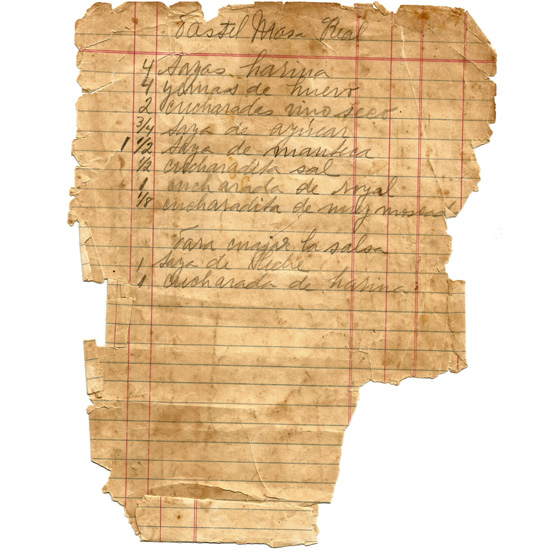 Pastel Masa Real
4 tazas harina
4 yemas de huevo
2 cucharadas vino seco
3/4 taza de azucar
1 1/2 taza de manteca
1/2 cucharadita sal
1 cucharada de royal
1/8 cucharadita de nuez moscada
Para cuajar la salsa
1 taza de leche
1 cucharada de harina